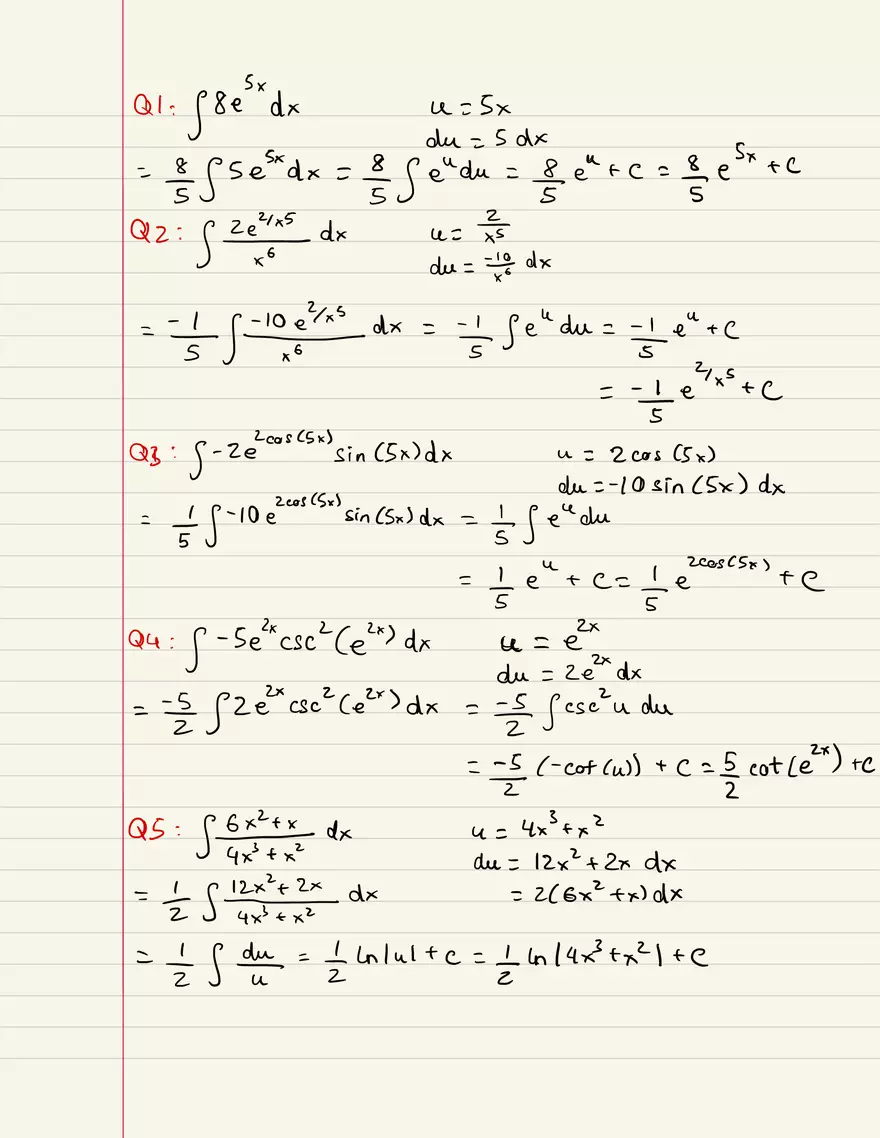 Q1: ∫ 8e^{5x} dx    u = 5x
du = 5 dx
= 8/5 ∫ 5e^{5x} dx = 8/5 ∫ e^u du = 8/5 e^u + C = 8/5 e^{5x} + C
Q2: ∫ (2e^{2/x^5})/(x^6) dx    u = 2/x^5
du = -10/x^6 dx
= -1/5 ∫ (-10 e^{2/x^5})/(x^6) dx = -1/5 ∫ e^u du = -1/5 e^u + C
= -1/5 e^{2/x^5} + C
Q3: ∫ -2e^{2cos(5x)} sin(5x) dx    u = 2cos(5x)
du = -10 sin(5x) dx
= 1/5 ∫ -10 e^{2cos(5x)} sin(5x) dx = 1/5 ∫ e^u du
= 1/5 e^u + C = 1/5 e^{2cos(5x)} + C
Q4: ∫ -5e^{2x} csc^2(e^{2x}) dx    u = e^{2x}
du = 2e^{2x} dx
= -5/2 ∫ 2e^{2x} csc^2(e^{2x}) dx = -5/2 ∫ csc^2 u du
= -5/2 (-cot(u)) + C = 5/2 cot(e^{2x}) + C
Q5: ∫ (6x^2+x)/(4x^3+x^2) dx    u = 4x^3+x^2
du = 12x^2+2x dx
= 1/2 ∫ (12x^2+2x)/(4x^3+x^2) dx    = 2(6x^2+x) dx
= 1/2 ∫ du/u = 1/2 ln|u| + C = 1/2 ln|4x^3+x^2| + C